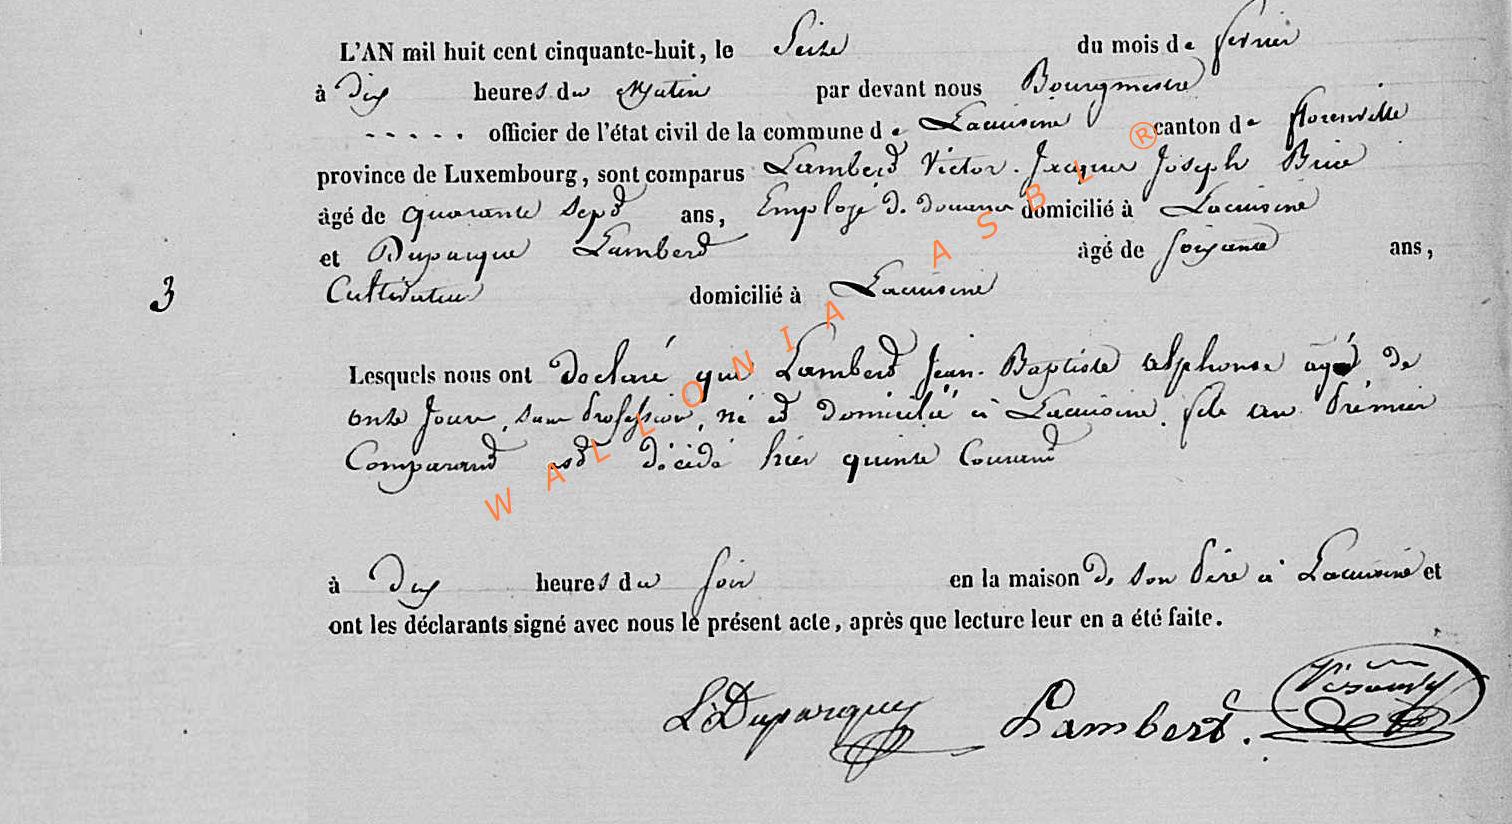 L'AN mil huit cent cinquante-huit, le Seize du mois de février
à Dix heures du Matin par devant nous Bourgmestre
- - - - - officier de l'état civil de la commune de Lacuisine canton de florenville
province de Luxembourg, sont comparus Lambert Victor. Jacques Joseph Brice
âgé de quarante Sept ans, Employé de douanes domicilié à Lacuisine
et Duparque Lambert âgé de Soixante ans,
3 Cultivateur domicilié à Lacuisine
Lesquels nous ont déclaré que Lambert Jean-Baptiste alphonse agé de
onze Jours, sans profession, né et domicilié à Lacuisine. fils au prémier
Comparant est décédé hier quinze Courant
à Dix heures du Soir en la maison de son père à Lacuisine et
ont les déclarants signé avec nous le présent acte, après que lecture leur en a été faite.
L Duparque Lambert.
WALLONIA ASBL ®